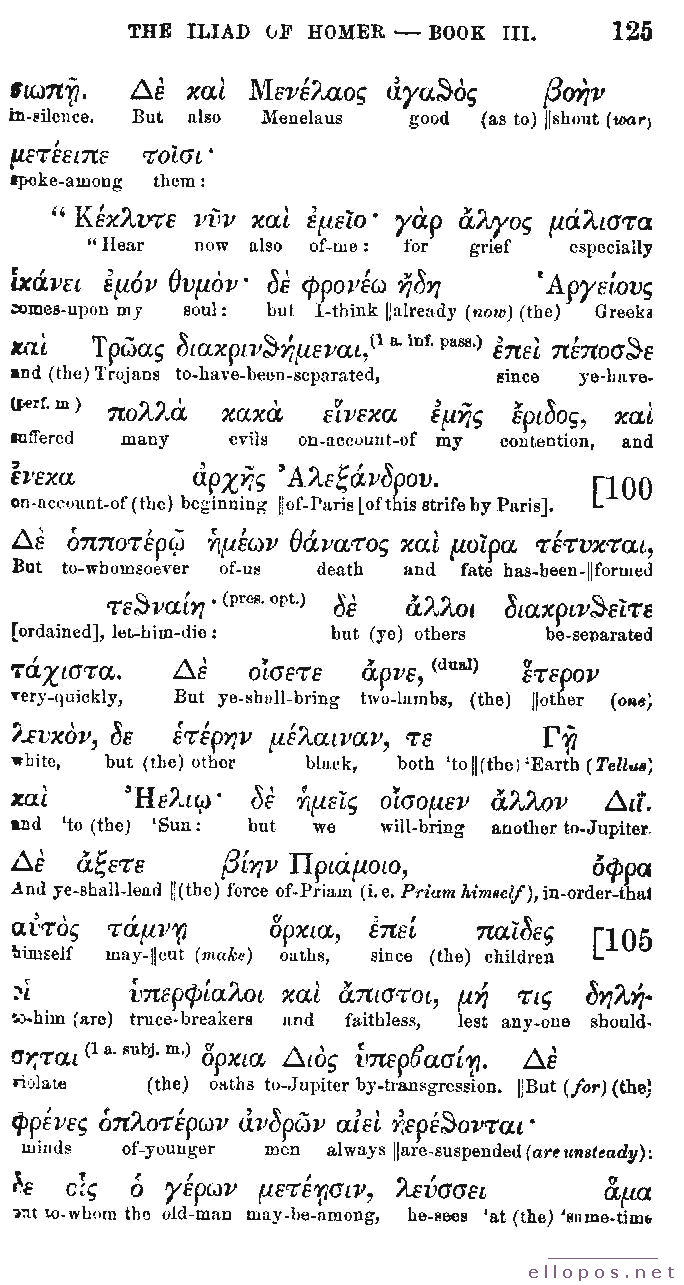 THE ILIAD OF HOMER — BOOK III. 125
σιωπῇ. Δὲ καὶ Μενέλαος ἀγαθὸς βοὴν
in-silence. But also Menelaus good (as to) ||shout (war)
μετέειπε τοῖσι·
spoke-among them:
“ Κέκλυτε νῦν καὶ ἐμεῖο· γὰρ ἄλγος μάλιστα
“Hear now also of-me: for grief especially
ἱκάνει ἐμόν θυμὸν· δὲ φρονέω ἤδη Ἀργείους
comes-upon my soul: but I-think ||already (now) (the) Greeks
καὶ Τρῶας διακρινθήμεναι,(1 a. inf. pass.) ἐπεὶ πέποσθε
and (the) Trojans to-have-been-separated, since ye-have-
(perf. m ) πολλὰ κακὰ εἵνεκα ἐμῆς ἔριδος, καὶ
suffered many evils on-account-of my contention, and
ἕνεκα ἀρχῆς Ἀλεξάνδρου. [100
on-account-of (the) beginning ||of-Paris [of this strife by Paris].
Δὲ ὁπποτέρῳ ἡμέων θάνατος καὶ μοῖρα τέτυκται,
But to-whomsoever of-us death and fate has-been-||formed
τεθναίη·(pres. opt.) δὲ ἄλλοι διακρινθεῖτε
[ordained], let-him-die: but (ye) others be-separated
τάχιστα. Δὲ οἴσετε ἄρνε,(dual) ἕτερον
very-quickly, But ye-shall-bring two-lambs, (the) ||other (one)
λευκὸν, δε ἑτέρην μέλαιναν, τε Γῇ
white, but (the) other black, both ‘to||(the) ‘Earth (Tellus)
καὶ Ἠελίῳ· δὲ ἡμεῖς οἴσομεν ἄλλον Διΐ.
and ‘to (the) ‘Sun: but we will-bring another to-Jupiter.
Δὲ ἄξετε βίην Πριάμοιο, ὄφρα
And ye-shall-lead ||(the) force of-Priam (i. e. Priam himself), in-order-that
αὐτὸς τάμνῃ ὅρκια, ἐπεί παῖδες [105
himself may-||cut (make) oaths, since (the) children
οἱ ὑπερφίαλοι καὶ ἄπιστοι, μή τις δηλή-
to-him (are) truce-breakers and faithless, lest any-one should-
σηται(1 a. subj. m.) ὅρκια Διὸς ὑπερβασίῃ. Δὲ
violate (the) oaths to-Jupiter by-transgression. ||But (for) (the)
φρένες ὁπλοτέρων ἀνδρῶν αἰεὶ ἠερέθονται·
minds of-younger men always ||are-suspended (are unsteady):
δε οἷς ὁ γέρων μετέῃσιν, λεύσσει ἅμα
but to-whom the old-man may-be-among, he-sees ‘at (the) ‘same-time
ellopos.net